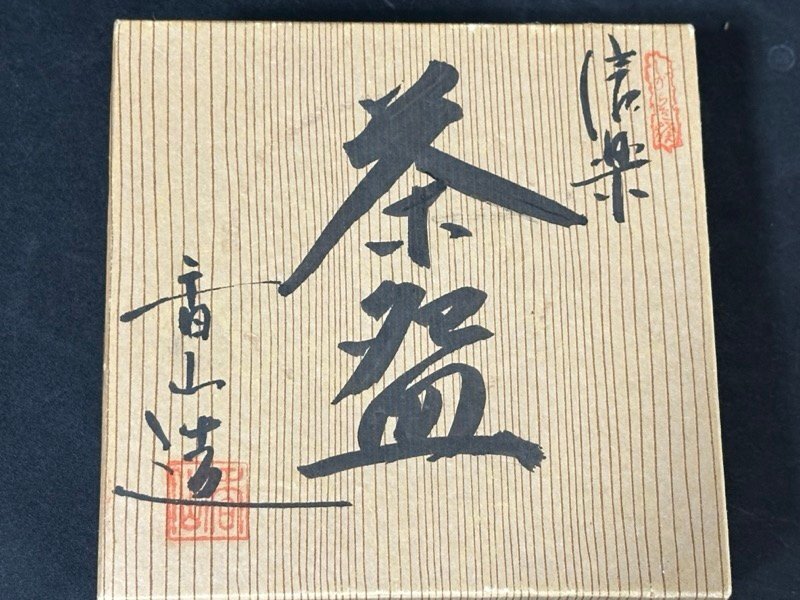 信楽
茶盌
音山造